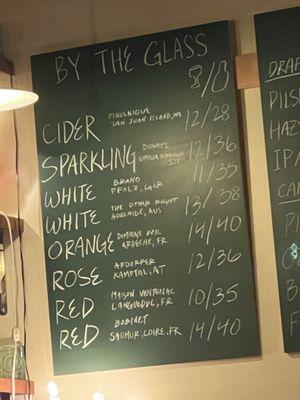 BY THE GLASS
CIDER PIQUENIQUE SAN JUAN ISLAND, WA 12/28
SPARKLING DONATI EMILIA ROMAGNA 12/36
WHITE BRAND PFALZ, GER 11/35
WHITE THE OTHER RIGHT ADELAIDE, AUS 13/38
ORANGE DOMAINE OZIL ARDECHE, FR 14/40
ROSE ARDORFER KAMPTAL, AT 12/36
RED MAISON VENTENAC LANGUEDOC, FR 10/35
RED BOBINET SAUMUR, LOIRE, FR 14/40
DRAF
PILS
HAZY
IPA
CAN